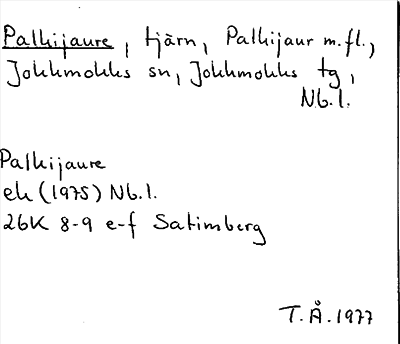 Palkijaure, tjärn, Palkijaur m.fl.,
Jokkmokks sn, Jokkmokks tg,
Nb.l.
Palkijaure
ek (1975) Nb.l.
26K 8-9 e-f Satimberg
T.Å. 1977